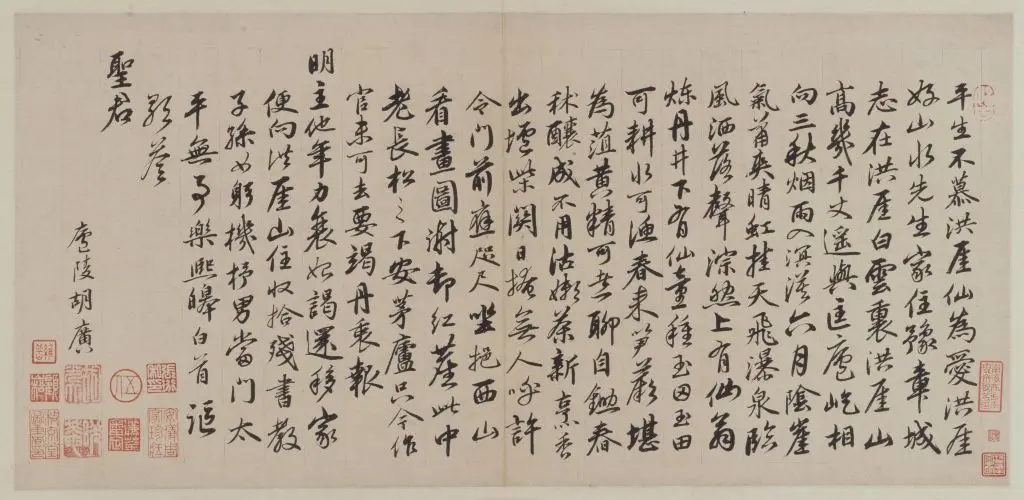 平生不慕洪厓仙為愛洪厓
好山水先生家住豫章城
志在洪厓白雲裏洪厓山
高幾千丈遥與匡廬屹相
向三秋烟雨入溟濛六月陰崖
氣蕭爽晴虹挂天飛瀑泉臨
風洒落聲淙然上有仙翁
煉丹井下有仙童種玉田玉田
可耕水可漁春來笋蕨堪
為葅黄精可煑聊自鋤春
秫釀成不用沽嫩茶新烹香
出壚柴關日掩無人呼許
令門前應咫尺坐挹西山
看畫圖謝却紅塵此中
老長松之下安茅廬只今作
官未可去要竭丹衷報
明主他年力衰始謁還移家
便向洪厓山住收拾殘書教
子孫女躬機杼男當門太
平無事樂熙皞白首謳
歌荅
聖君
廬陵胡廣